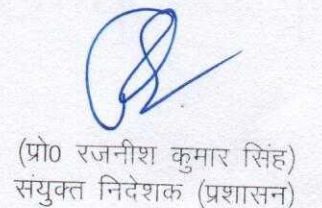 (प्रो0 रजनीश कुमार सिंह)
संयुक्त निदेशक (प्रशासन)